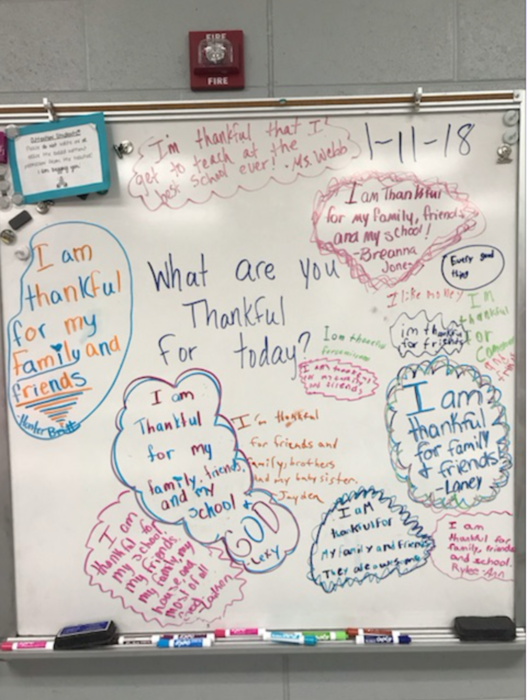 FIRE
FIRE
I'm thankful that I
get to teach at the
best school ever! - Ms. Webb
1-11-18
I am Thankful
for my family, friends
and my school!
-Breanna
Jones-
Every good
thing
I am
thankful
for my
family and
friends
What are you
Thankful
For today?
I like money
I'm
thankful
for
im thankful
for friends
I am thankful
I am thankful
for my family
and friends
I am
Thankful
for my
family, friends,
and my
school &
GOD
-Lefy
I'm thankful
for friends and
family, brothers
and my baby sister.
Jayden
I am
thankful
for family
& friends!
-Laney
I am
thankful for
my school,
my friends,
my family, my
house, and
most of all
I aM
thankful for
My family and Friends
They are
I am
thankful for
family, friends
and school.
Rylee-Ann